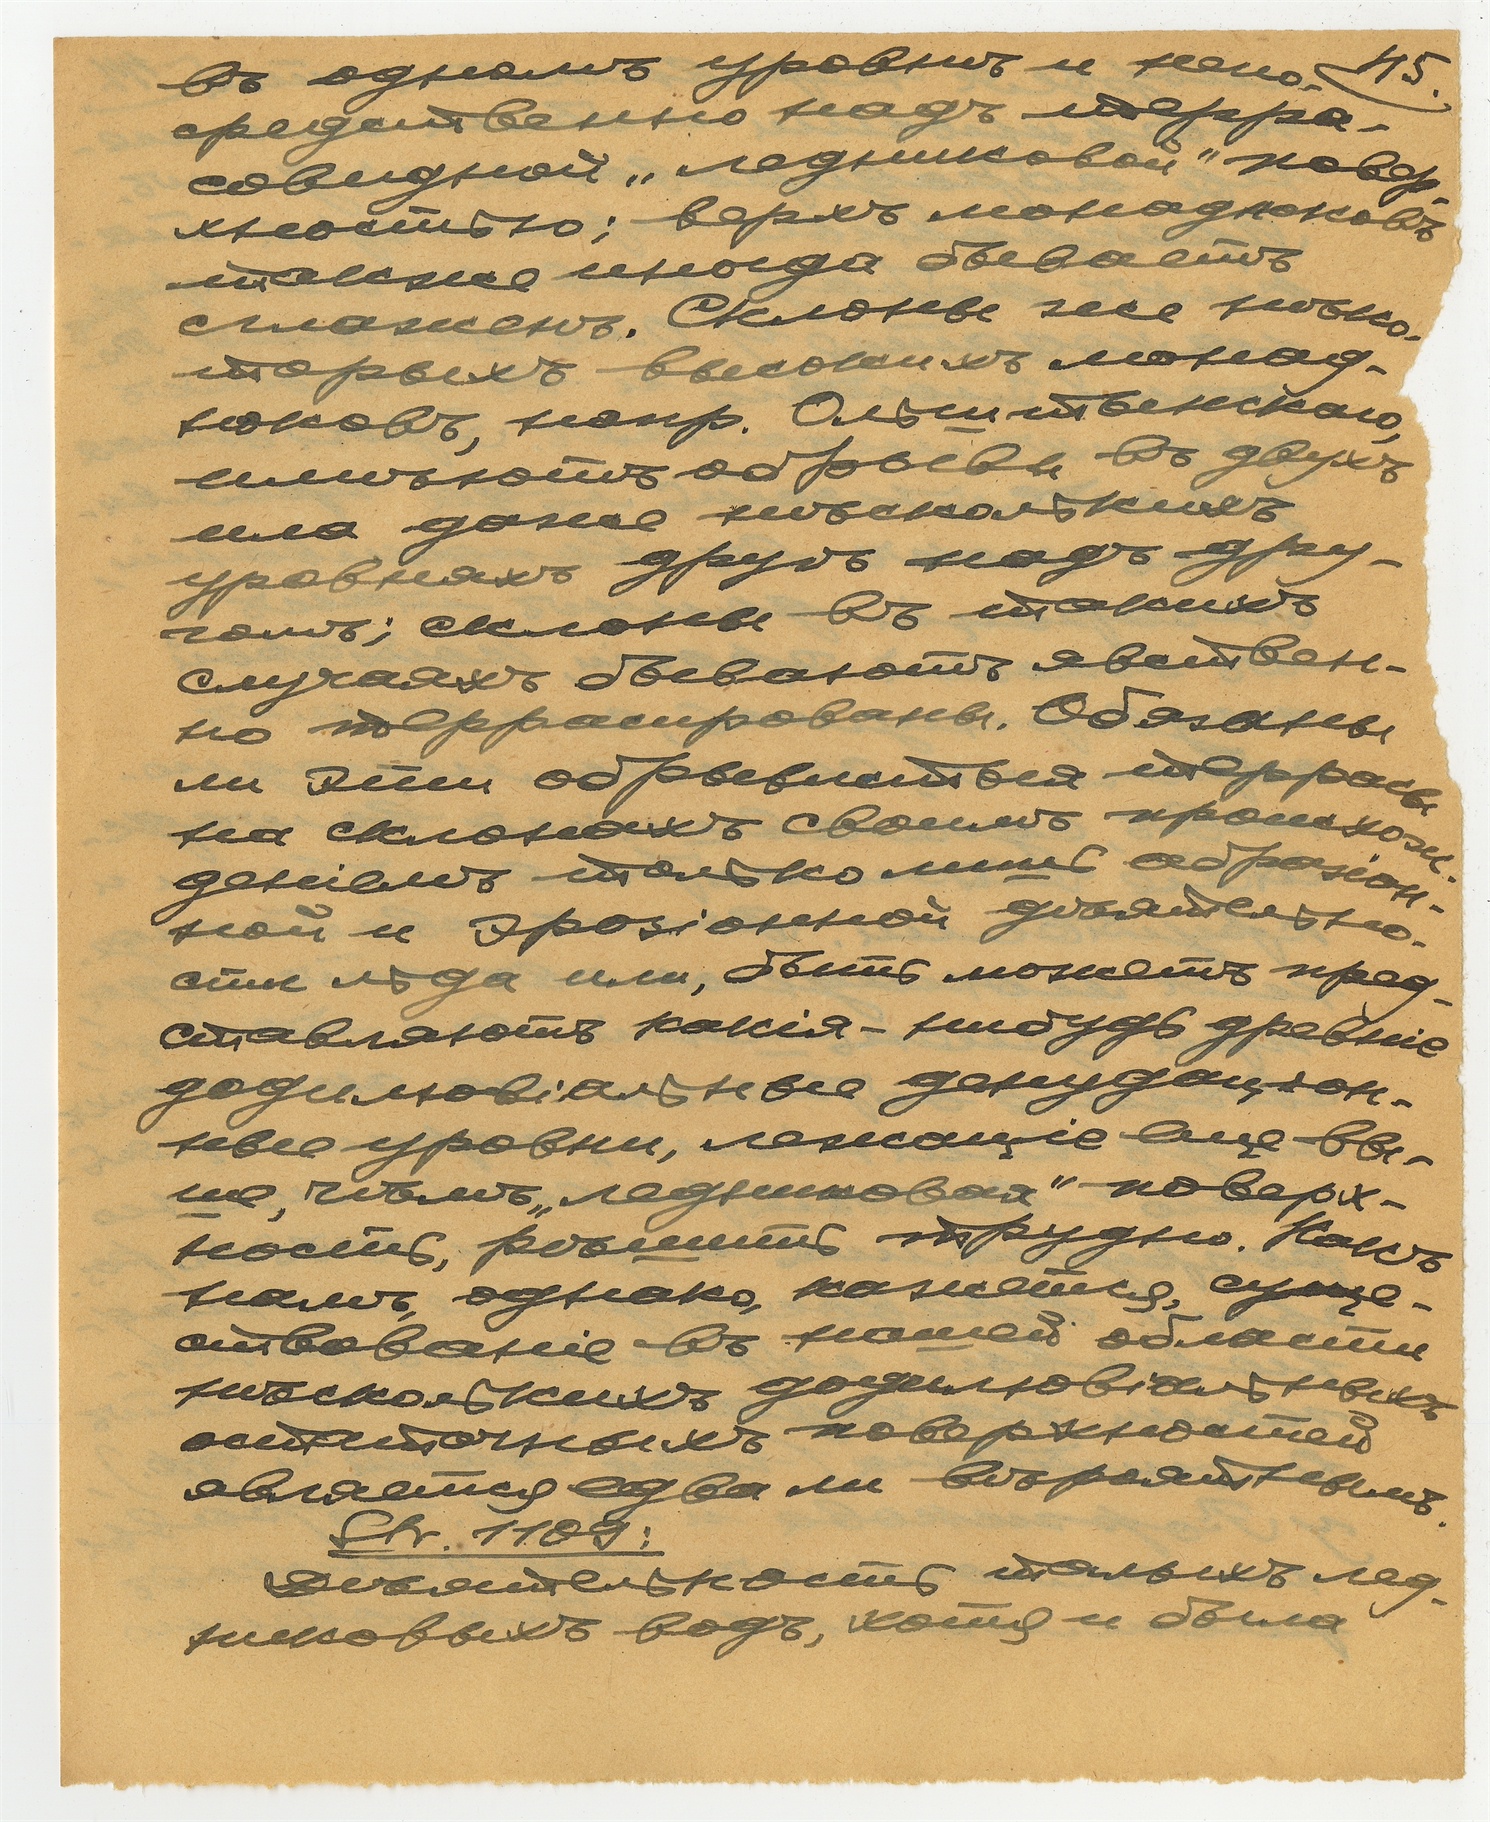 въ одномъ уровнѣ и непо- 45.
средственно надъ терра-
совидной „ледниковой" повер-
хностью; верхъ монадноковъ
также иногда бываетъ
сглаженъ. Склоны же нѣко-
торыхъ высокихъ монад-
ноковъ, напр.
имѣютъ обрывы въ двухъ
или даже нѣсколькихъ
уровняхъ другъ надъ дру-
гомъ; склоны въ такихъ
случаяхъ бываютъ явствен-
но террасированы. Обязаны
ли эти обрывистыя террасы
на склонахъ своимъ происхож-
деніемъ только лишь абразіон-
ной и эрозіонной дѣятельно-
сти льда или, быть можетъ пред-
ставляютъ какія-нибудь древніе
додилювіальные денудаціон-
ные уровни, лежащіе еще вы-
ше, чѣмъ „ледниковая" поверх-
ность, рѣшить трудно. Какъ
намъ, однако, кажется, суще-
ствованіе въ нашей области
нѣсколькихъ додилювіальныхъ
остаточныхъ поверхностей
является едва ли вѣроятнымъ.
Str. 1109:
Дѣятельность талыхъ лед-
никовыхъ водъ, хотя и была